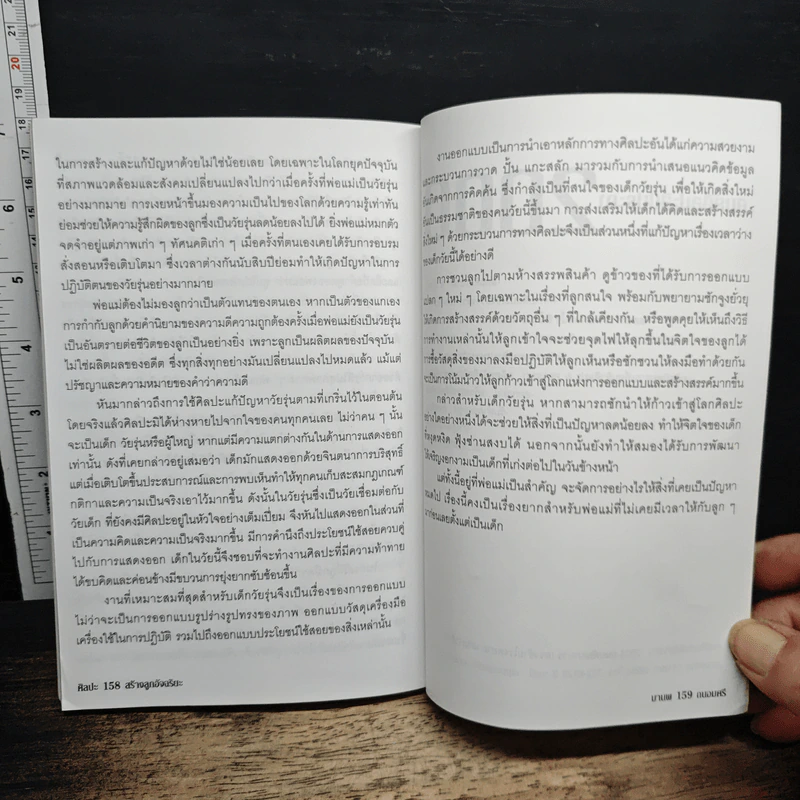 ในการสร้างและแก้ปัญหาด้วยไม่ใช่น้อยเลย โดยเฉพาะในโลกยุคปัจจุบัน
ที่สภาพแวดล้อมและสังคมเปลี่ยนแปลงไปกว่าเมื่อครั้งที่พ่อแม่เป็นวัยรุ่น
อย่างมากมาย การเงยหน้าขึ้นมองความเป็นไปของโลกด้วยความรู้เท่าทัน
ย่อมช่วยให้ความรู้สึกผิดของลูกซึ่งเป็นวัยรุ่นลดน้อยลงไปได้ ยิ่งพ่อแม่หมกตัว
จดจำอยู่แต่ภาพเก่า ๆ ทัศนคติเก่า ๆ เมื่อครั้งที่ตนเองเคยได้รับการอบรม
สั่งสอนหรือเติบโตมา ซึ่งเวลาต่างกันนับสิบปีย่อมทำให้เกิดปัญหาในการ
ปฏิบัติตนของวัยรุ่นอย่างมากมาย
พ่อแม่ต้องไม่มองลูกว่าเป็นตัวแทนของตนเอง หากเป็นตัวของแกเอง
การกำกับลูกด้วยคำนิยามของความดีความถูกต้องครั้งเมื่อพ่อแม่ยังเป็นวัยรุ่น
เป็นอันตรายต่อชีวิตของลูกเป็นอย่างยิ่ง เพราะลูกเป็นผลิตผลของปัจจุบัน
ไม่ใช่ผลิตผลของอดีต ซึ่งทุกสิ่งทุกอย่างมันเปลี่ยนแปลงไปหมดแล้ว แม้แต่
ปรัชญาและความหมายของคำว่าความดี
หันมากล่าวถึงการใช้ศิลปะแก้ปัญหาวัยรุ่นตามที่เกริ่นไว้ในตอนต้น
โดยจริงแล้วศิลปะมิได้ห่างหายไปจากใจของคนทุกคนเลย ไม่ว่าคน ๆ นั้น
จะเป็นเด็ก วัยรุ่นหรือผู้ใหญ่ หากแต่มีความแตกต่างกันในด้านการแสดงออก
เท่านั้น ดังที่เคยกล่าวอยู่เสมอว่า เด็กมักแสดงออกด้วยจินตนาการบริสุทธิ์
แต่เมื่อเติบโตขึ้นประสบการณ์และการพบเห็นทำให้ทุกคนเก็บสะสมกฎเกณฑ์
กติกาและความเป็นจริงเอาไว้มากขึ้น ดังนั้นในวัยรุ่นซึ่งเป็นวัยเชื่อมต่อกับ
วัยเด็ก ที่ยังคงมีศิลปะอยู่ในหัวใจอย่างเต็มเปี่ยม จึงหันไปแสดงออกในส่วนที่
เป็นความคิดและความเป็นจริงมากขึ้น มีการคำนึงถึงประโยชน์ใช้สอยควบคู่
ไปกับการแสดงออก เด็กในวัยนี้จึงชอบที่จะทำงานศิลปะที่มีความท้าทาย
ได้ขบคิดและค่อนข้างมีขบวนการยุ่งยากซับซ้อนขึ้น
งานที่เหมาะสมที่สุดสำหรับเด็กวัยรุ่นจึงเป็นเรื่องของการออกแบบ
ไม่ว่าจะเป็นการออกแบบรูปร่างรูปทรงของภาพ ออกแบบวัสดุเครื่องมือ
เครื่องใช้ในการปฏิบัติ รวมไปถึงออกแบบประโยชน์ใช้สอยของสิ่งเหล่านั้น
ศิลปะ 158 สร้างลูกอัจฉริยะ
งานออกแบบเป็นการนำเอาหลักการทางศิลปะอันได้แก่ความสวยงาม
และกระบวนการวาด ปั้น แกะสลัก มารวมกับการนำเสนอแนวคิดข้อมูล
อันเกิดจากการคิดค้น ซึ่งกำลังเป็นที่สนใจของเด็กวัยรุ่น เพื่อให้เกิดสิ่งใหม่
อันเป็นธรรมชาติของคนวัยนี้ขึ้นมา การส่งเสริมให้เด็กได้คิดและสร้างสรรค์
สิ่งใหม่ ๆ ด้วยกระบวนการทางศิลปะจึงเป็นส่วนหนึ่งที่แก้ปัญหาเรื่องเวลาว่าง
ของเด็กวัยนี้ได้อย่างดี
การชวนลูกไปตามห้างสรรพสินค้า ดูข้าวของที่ได้รับการออกแบบ
แปลก ๆ ใหม่ ๆ โดยเฉพาะในเรื่องที่ลูกสนใจ พร้อมกับพยายามชักจูงยั่วยุ
ให้เกิดการสร้างสรรค์ด้วยวัตถุอื่น ๆ ที่ใกล้เคียงกัน หรือพูดคุยให้เห็นถึงวิธี
การทำงานเหล่านั้นให้ลูกเข้าใจจะช่วยจุดไฟให้ลุกขึ้นในจิตใจของลูกได้
การซื้อวัสดุสิ่งของมาลงมือปฏิบัติให้ลูกเห็นหรือชักชวนให้ลงมือทำด้วยกัน
จะเป็นการโน้มน้าวให้ลูกก้าวเข้าสู่โลกแห่งการออกแบบและสร้างสรรค์มากขึ้น
กล่าวสำหรับเด็กวัยรุ่น หากสามารถชักนำให้ก้าวเข้าสู่โลกศิลปะ
อย่างใดอย่างหนึ่งได้จะช่วยให้สิ่งที่เป็นปัญหาลดน้อยลง ทำให้จิตใจของเด็ก
ที่หงุดหงิด ฟุ้งซ่านสงบได้ นอกจากนั้นยังทำให้สมองได้รับการพัฒนา
ให้เจริญงอกงามเป็นเด็กที่เก่งต่อไปในวันข้างหน้า
แต่ทั้งนี้อยู่ที่พ่อแม่เป็นสำคัญ จะจัดการอย่างไรให้สิ่งที่เคยเป็นปัญหา
หมดไป เรื่องนี้คงเป็นเรื่องยากสำหรับพ่อแม่ที่ไม่เคยมีเวลาให้กับลูก ๆ
มาก่อนเลยตั้งแต่เป็นเด็ก
มานพ 159 ถนอมศรี